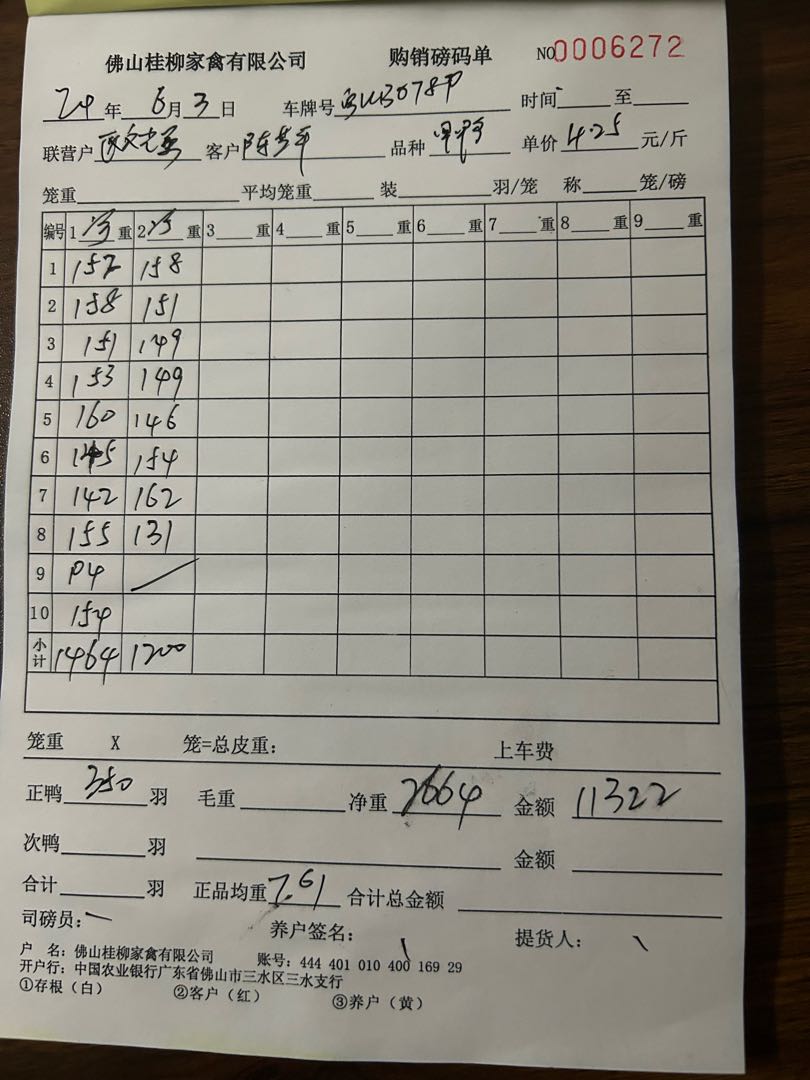 佛山桂柳家禽有限公司 购销磅码单 NO 0006272
24年6月3日 车牌号 时间 至
联营户 客户 品种 单价4.25元/斤
笼重 平均笼重 装 羽/笼 称 笼/磅
编号 1 重 2 重 3 重 4 重 5 重 6 重 7 重 8 重 9 重
1 152 158
2 158 151
3 151 149
4 153 149
5 160 146
6 154
7 142 162
8 155 131
9
10 154
小计 1464 1200
笼重 X 笼=总皮重: 上车费
正鸭350羽 毛重 净重2664 金额11322
次鸭 羽 金额
合计 羽 正品均重7.61 合计总金额
司磅员: 养户签名: 提货人:
户 名: 佛山桂柳家禽有限公司 账号: 444 401 010 400 169 29
开户行: 中国农业银行广东省佛山市三水区三水支行
①存根(白) ②客户(红) ③养户(黄)